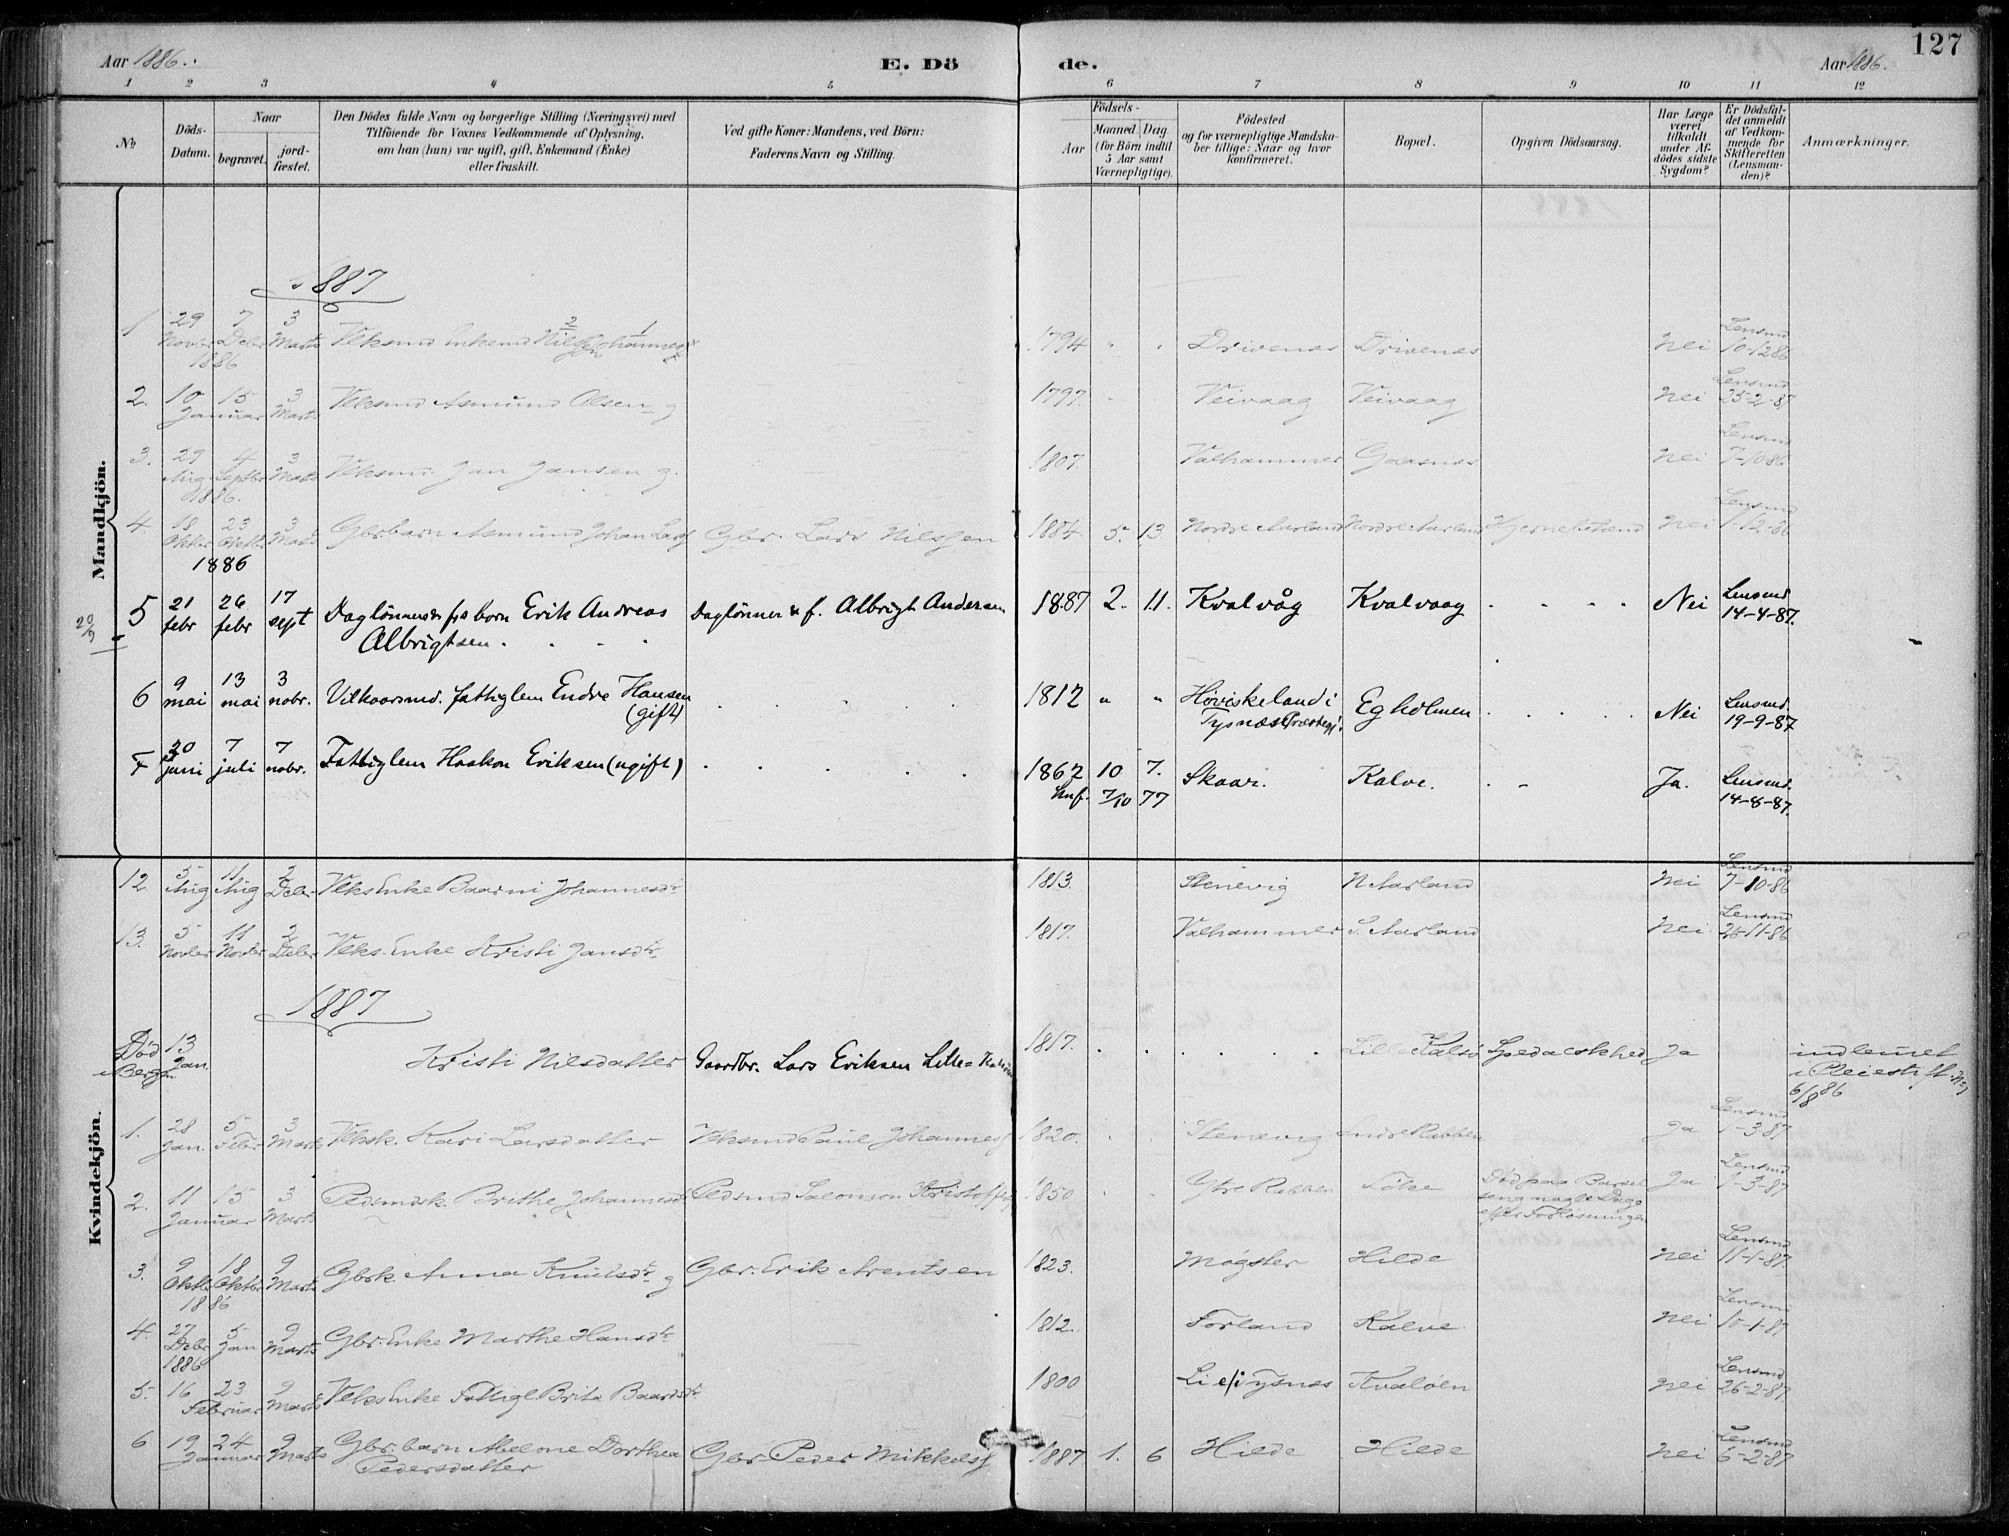 127
Aar 1886.
E. Dö
de.
Aar 1886.
1 2 3 4 5 6 7 8 9 10 11 12
No
Döds-Datum.
Naar
begravet.
jord-fæstet.
Den Dödes fulde Navn og borgerlige Stilling (Næringsvei) med
Tilföiende for Voxnes Vedkommende af Oplysning,
om han (hun) var ugift, gift, Enkemand (Enke)
eller fraskilt.
Ved gifte Koner: Mandens, ved Börn:
Faderens Navn og Stilling.
Födsels-
Aar
Maaned. Dag
(for Börn indtil
5 Aar samt
Værnepligtige).
Födested
og for værnepligtige Mandska-
ber tillige: Naar og hvor
konfirmeret.
Bopæl.
Opgiven Dödsaarsag.
Har Læge
været
tilkaldt
under Af-
dödes sidste
Sygdom?
Er Dödsfal-
det anmeldt
af Vedkom-
mende for
Skifteretten
(Lensman-
den)?
Anmærkninger.
Mandkjön.
1887
1 29 Novbr 1886 7 Debr 3 Marts Vlksmd Enkemd Nilsen Johannes 1794 " " Drivenes Drivenes Nei Lensmd 10-12 86
2. 10 15 Januar 3 Marts Vlksmd Asmund Olsen g 1797 Veivaag Veivaag Nei Lensmd 25-2-87
3. 29 Aug 4 Septbr 1886. 3 Marts Vlksmd Jan Jansen g. 1807. Valhammer Gaasnes Nei Lensmd 7-10 86
4 18 Oktbr 23 Oktbr 1886 3 Marts Gbrbarn Asmund Johan Larss Gbr. Lars Nilssen 1884. 5. 13. Nordre Aarland Nordre Aarland Hjernebetænd Nei Lensmd 1-12-86
20/9
5 21 febr 26 febr 17 sept Daglönners barn Erik Andreas Daglönner & f. Albrigt Andersen 1887 2. 11. Kvalvåg Kvalvaag Nei Lensmd 14-4-87.
Albrigtsen
6 9 mai 13 mai 3 nobr. Vilkaarsmd. fattiglem Endre Hansen (gift) 1812 " " Höviskeland i Tysnæs Præsteg. Egholmen Nei Lensmd. 19-9-87
7 20 juni 7 juli 7 nobr. Fattiglem Haakon Eriksen (ugift) 1862 10 7. Skaar. Kalve. Ja. Lensmd. 14-8-87.
knf. 7/10 77
Kvindekjön.
12 5 Aug 11 Aug 2 Debr Vlks Enke Baarni Johannesdr 1813. Stenevig N Aarland Nei Lensmd 7-10-86
13. 5 Novbr 11 Novbr 2 Debr Vlks. Enke Kristi Jansdr 1817. Valhammer S. Aarland Nei Lensmd 26-11-86
1887
Död i Bergen 13 Jan. Kristi Nilsdatter Gaardbr. Lars Eriksen Lille-Kalsö 1817. Lille Kalsö Spedalskhed Ja indlemet i Pleiestift. No 1 6/8 86
1. 28 Jan. 5 Febr 3 Marts Vlksk. Kari Larsdatter Vlksmd Paul Johanness 1820. Stenevig Indre Rabben Ja Lensmd 1-3-87
2. 11 15 Januar 3 Marts Pldsmdsk. Brithe Johannesd Pldsmd Salomon Kristoffers 1850 Ytre Rabben Töke Död paa Barsel seng nogle Dage efter Forlösningen Ja Lensmd 1-3-87
3. 9 Oktbr 18 Oktbr 1886 9 Marts Gbrsk. Anna Knutsdr g Gbr. Erik Arentsen 1823. Møgster Hilde Nei Lensmd 11-1-87.
4. 27 Debr 1886 5 Jan 9 Marts Gbr. Enke Marthe Hansdr 1812. Forland Kalve Nei Lensmd 10-1-87
5. 16 23 Februar 9 Marts Vlks Enke Fattigl Brita Baardsdr 1800 Lie i Tysnes Kvaløen Nei Lensmd 26-2-87
6 19 24 Januar 9 Marts Gbr. barn Abelone Dorthea Gbr Peder Mikkelss 1887 1. 6 Hilde Hilde Nei Lensmd 6-2-87
Pedersdatter